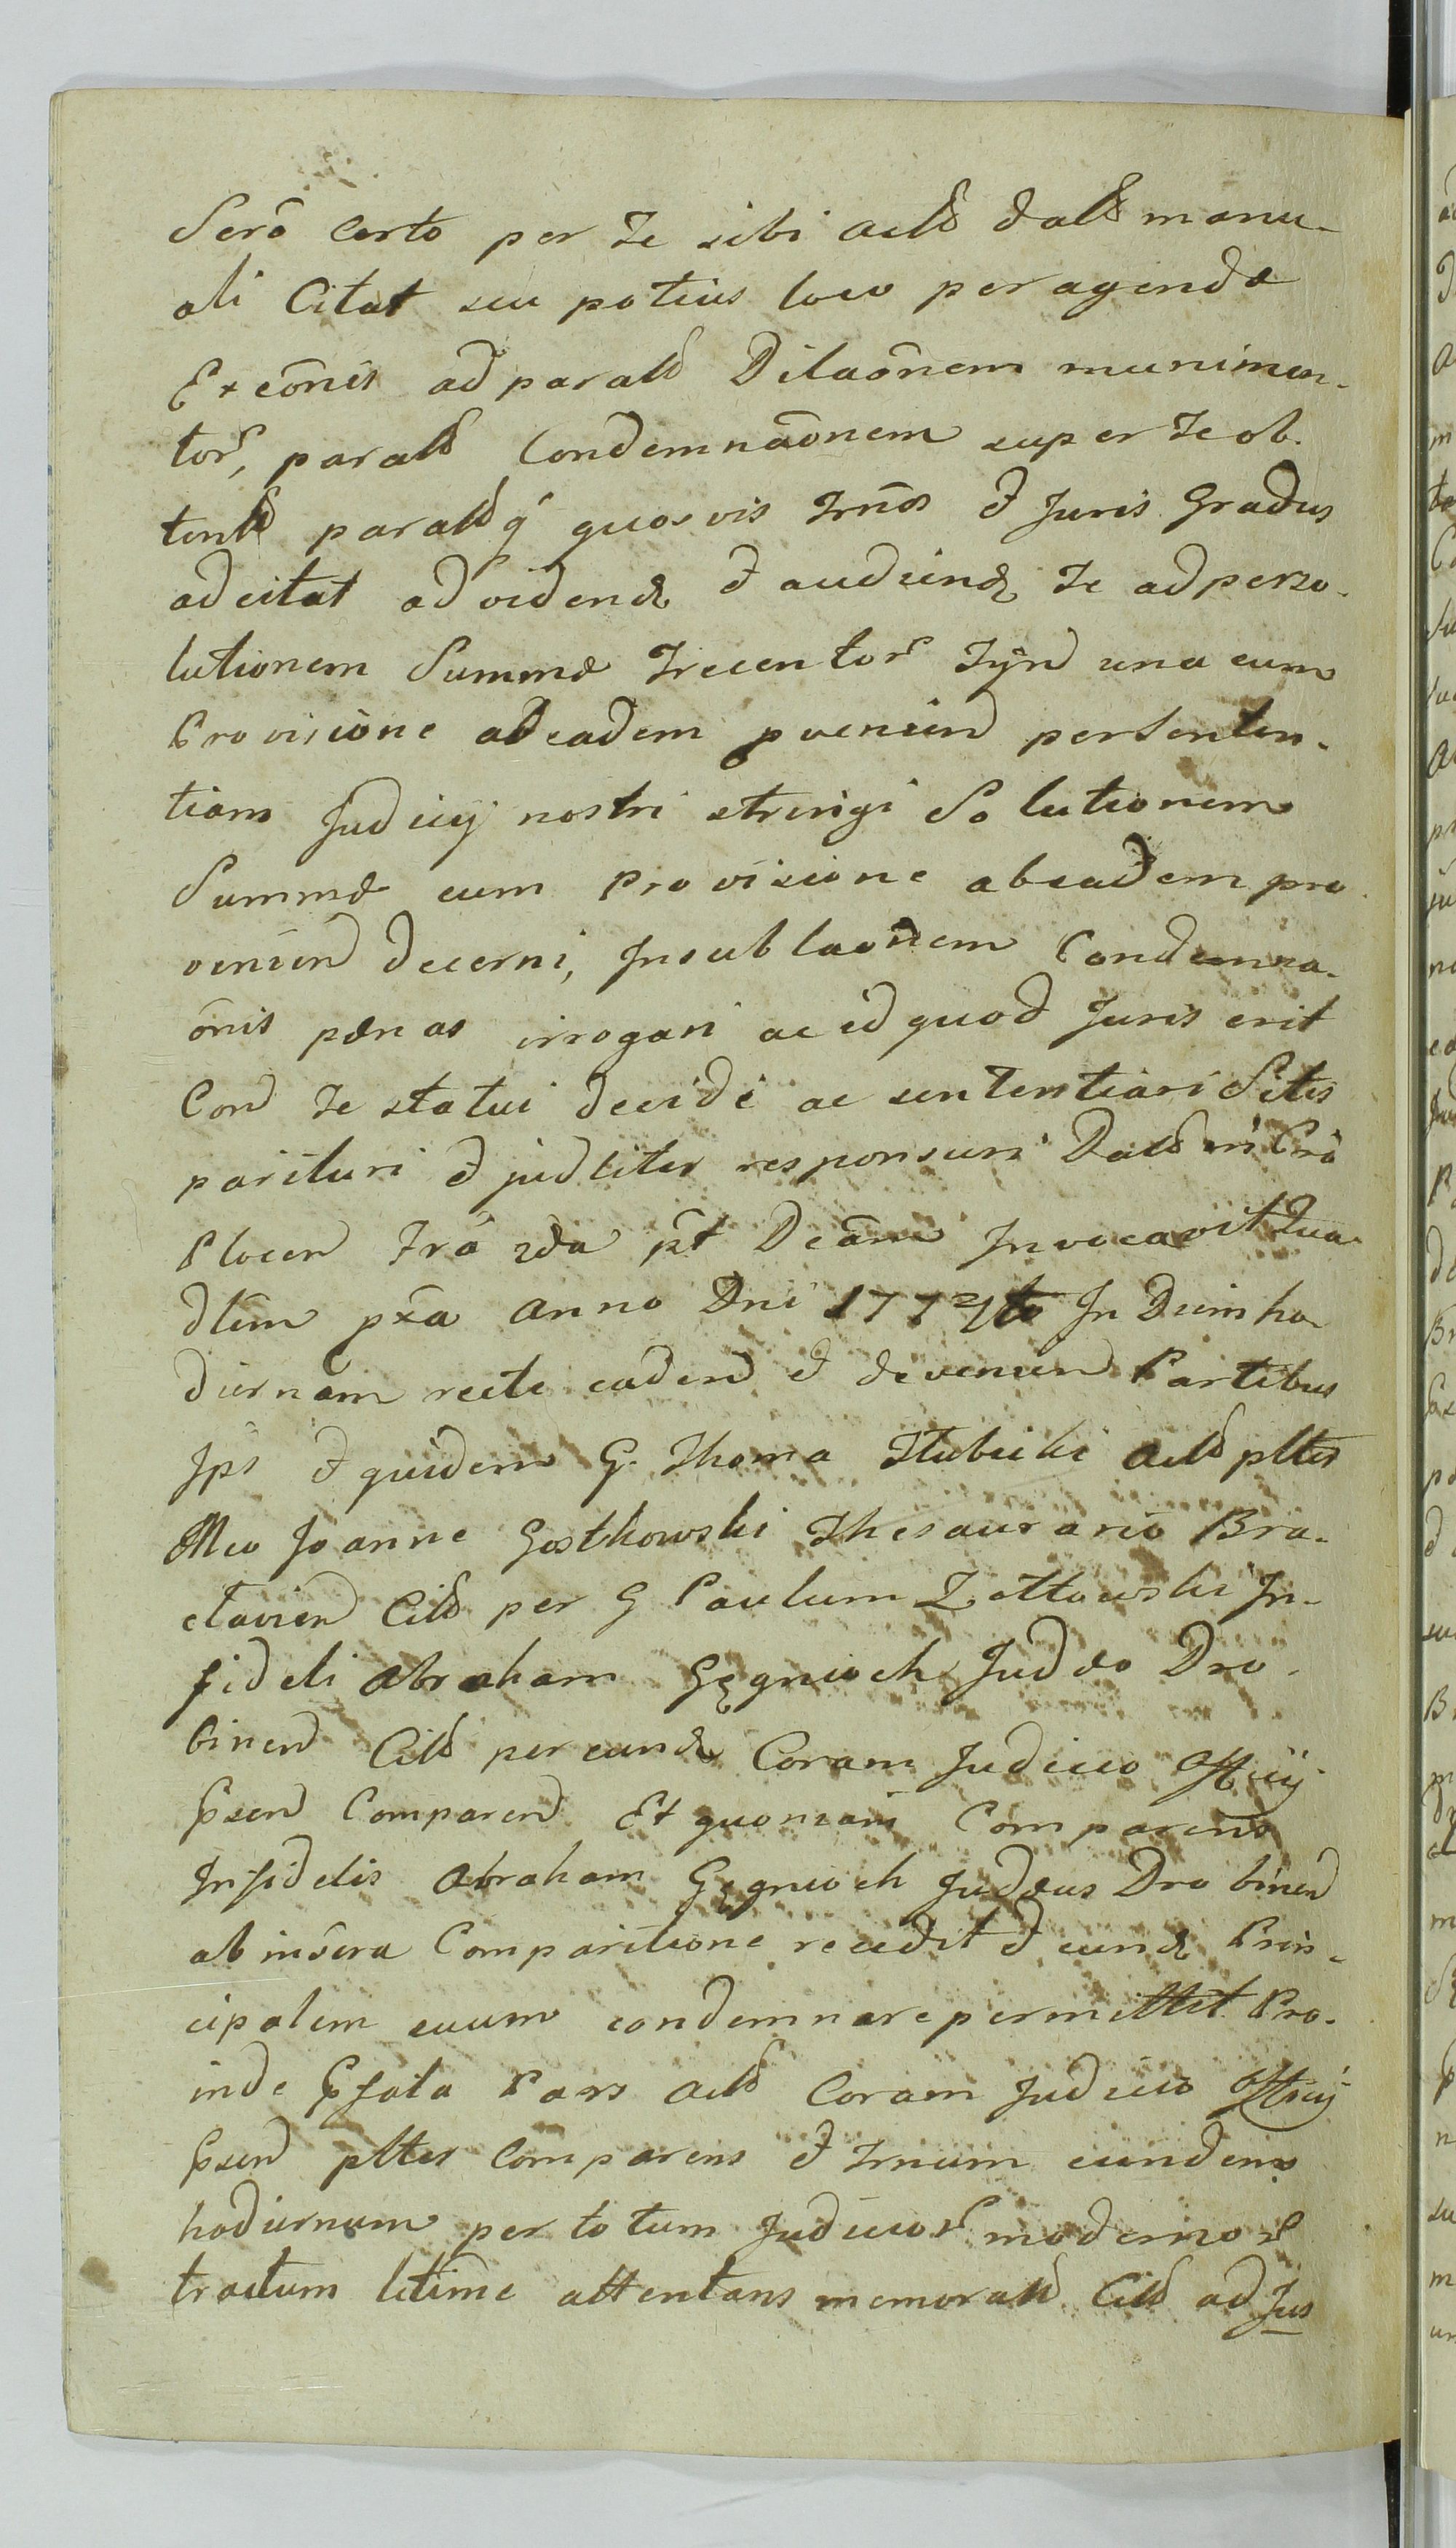 Serō certo per Te sibi actō datō manu-
ali Citat seu potius loco peragendæ
Exeōnis ad paratō Dilaōnem munimen-
tor, paratō Condemnāonem super Te ob-
tentō paratōq quosvis Trnōs & Juris Gradus
adcitat ad videnđ & audienđ Te ad perso-
lutionem Summæ Trecentor Tynđ una cum
Provisione ab eadem pvenienđ per Senten-
tiam Judicij nostri stringi Solutionem
Summæ cum Provisione ab eadem pro
venienđ decerni, Insublaōnem Condemna-
ōnis pænas irrogari ac id quod Juris erit
Conđ Te statui decidi ac sententiari Sitis
parituri & judliter responsuri Datō in Crō
Plocen Frā 2da pt Dcām Invocavit Qua-
dlem pxa Anno Dni 1772do In Diem ho-
diernam recte cadenđ & devenienđ Partibus
Ips & quidem G. Thoma Hubicki Actō plter
Mco Joanne Gostkowski Thesaurario Bra-
clavienđ Citō per G Paulum Zottowski In-
fideli Abraham Gęgnioch Judæo Dro-
binenđ Citō per eunđ Coram Judicio Offcij
Pxenđ Comparenđ Et quoniam Comparens
Infidelis Abraham Gęgnioch Judæus Drobinenđ
ab insera Comparitione recedit & eunđ Prin-
cipalem suum condemnare permittit Pro-
inde Pfata Pars Actō Coram Judicio Offcij
Pxenđ plter Comparens & Trnum eundem
hodiernum per totum Judicior modernor
tractum ltime attentans memoratō Citō ad Jus